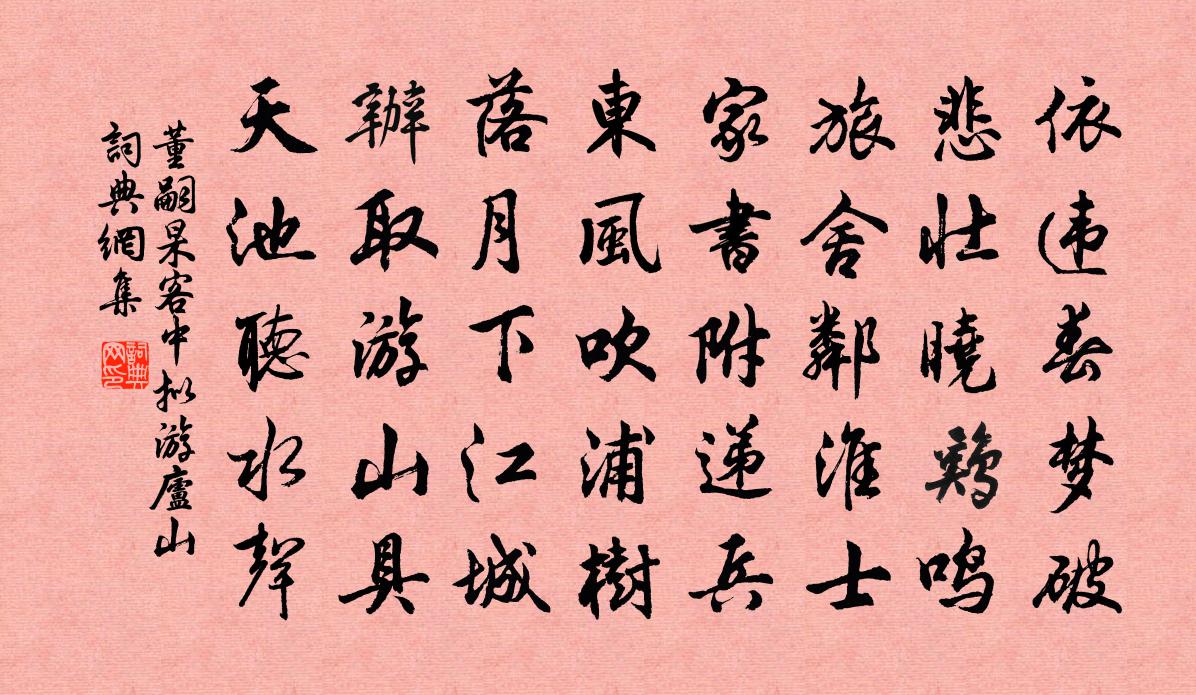 依违春梦破
悲壮曉鷄鸣
旅舍鄰淮士
家書附递兵
東風吹浦樹
落月下江城
辦取游山具
天池聽水聲
董嗣杲客中拟游廬山
詞典網集
詞典网印